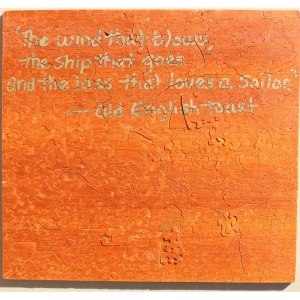 "The wind that blows,
the ship that goes
and the lass that loves a sailor"
— old English toast